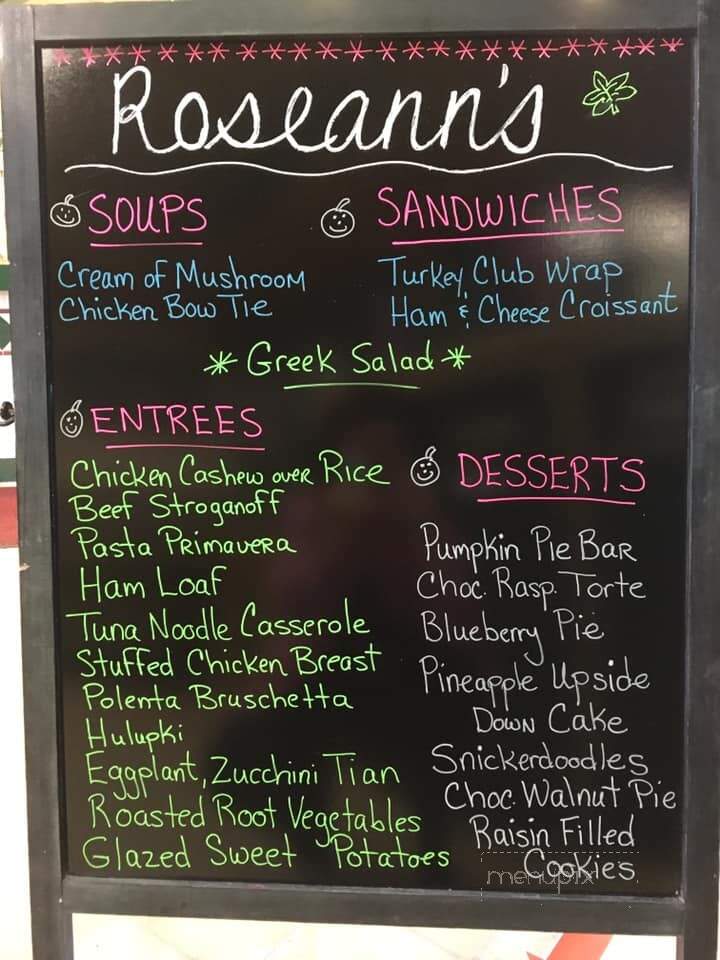 Roseann's
SOUPS
Cream of Mushroom
Chicken Bow Tie
SANDWICHES
Turkey Club Wrap
Ham & Cheese Croissant
* Greek Salad *
ENTREES
Chicken Cashew over Rice
Beef Stroganoff
Pasta Primavera
Ham Loaf
Tuna Noodle Casserole
Stuffed Chicken Breast
Polenta Bruschetta
Hulupki
Eggplant, Zucchini Tian
Roasted Root Vegetables
Glazed Sweet Potatoes
DESSERTS
Pumpkin Pie Bar
Choc. Rasp. Torte
Blueberry Pie
Pineapple Upside
Down Cake
Snickerdoodles
Choc. Walnut Pie
Raisin Filled
Cookies
menupix